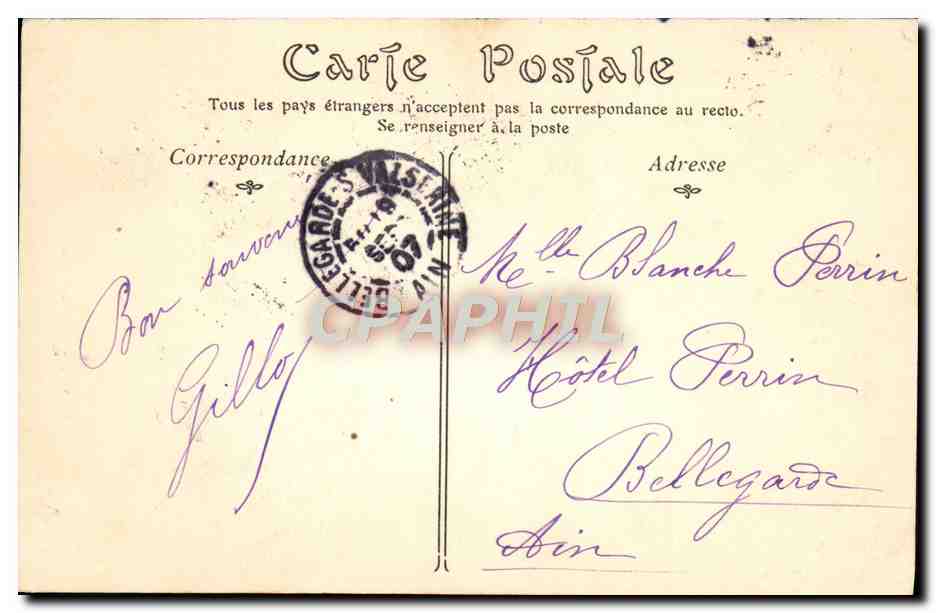 Carte Postale
Tous les pays étrangers n'acceptent pas la correspondance au recto.
Se renseigner à la poste
Correspondance
Adresse
BELLEGARDE-S-VALSERINE AIN
07
Bon souvenir
Melle Blanche Perrin
Hôtel Perrin
Bellegarde
Ain
CPAPHIL